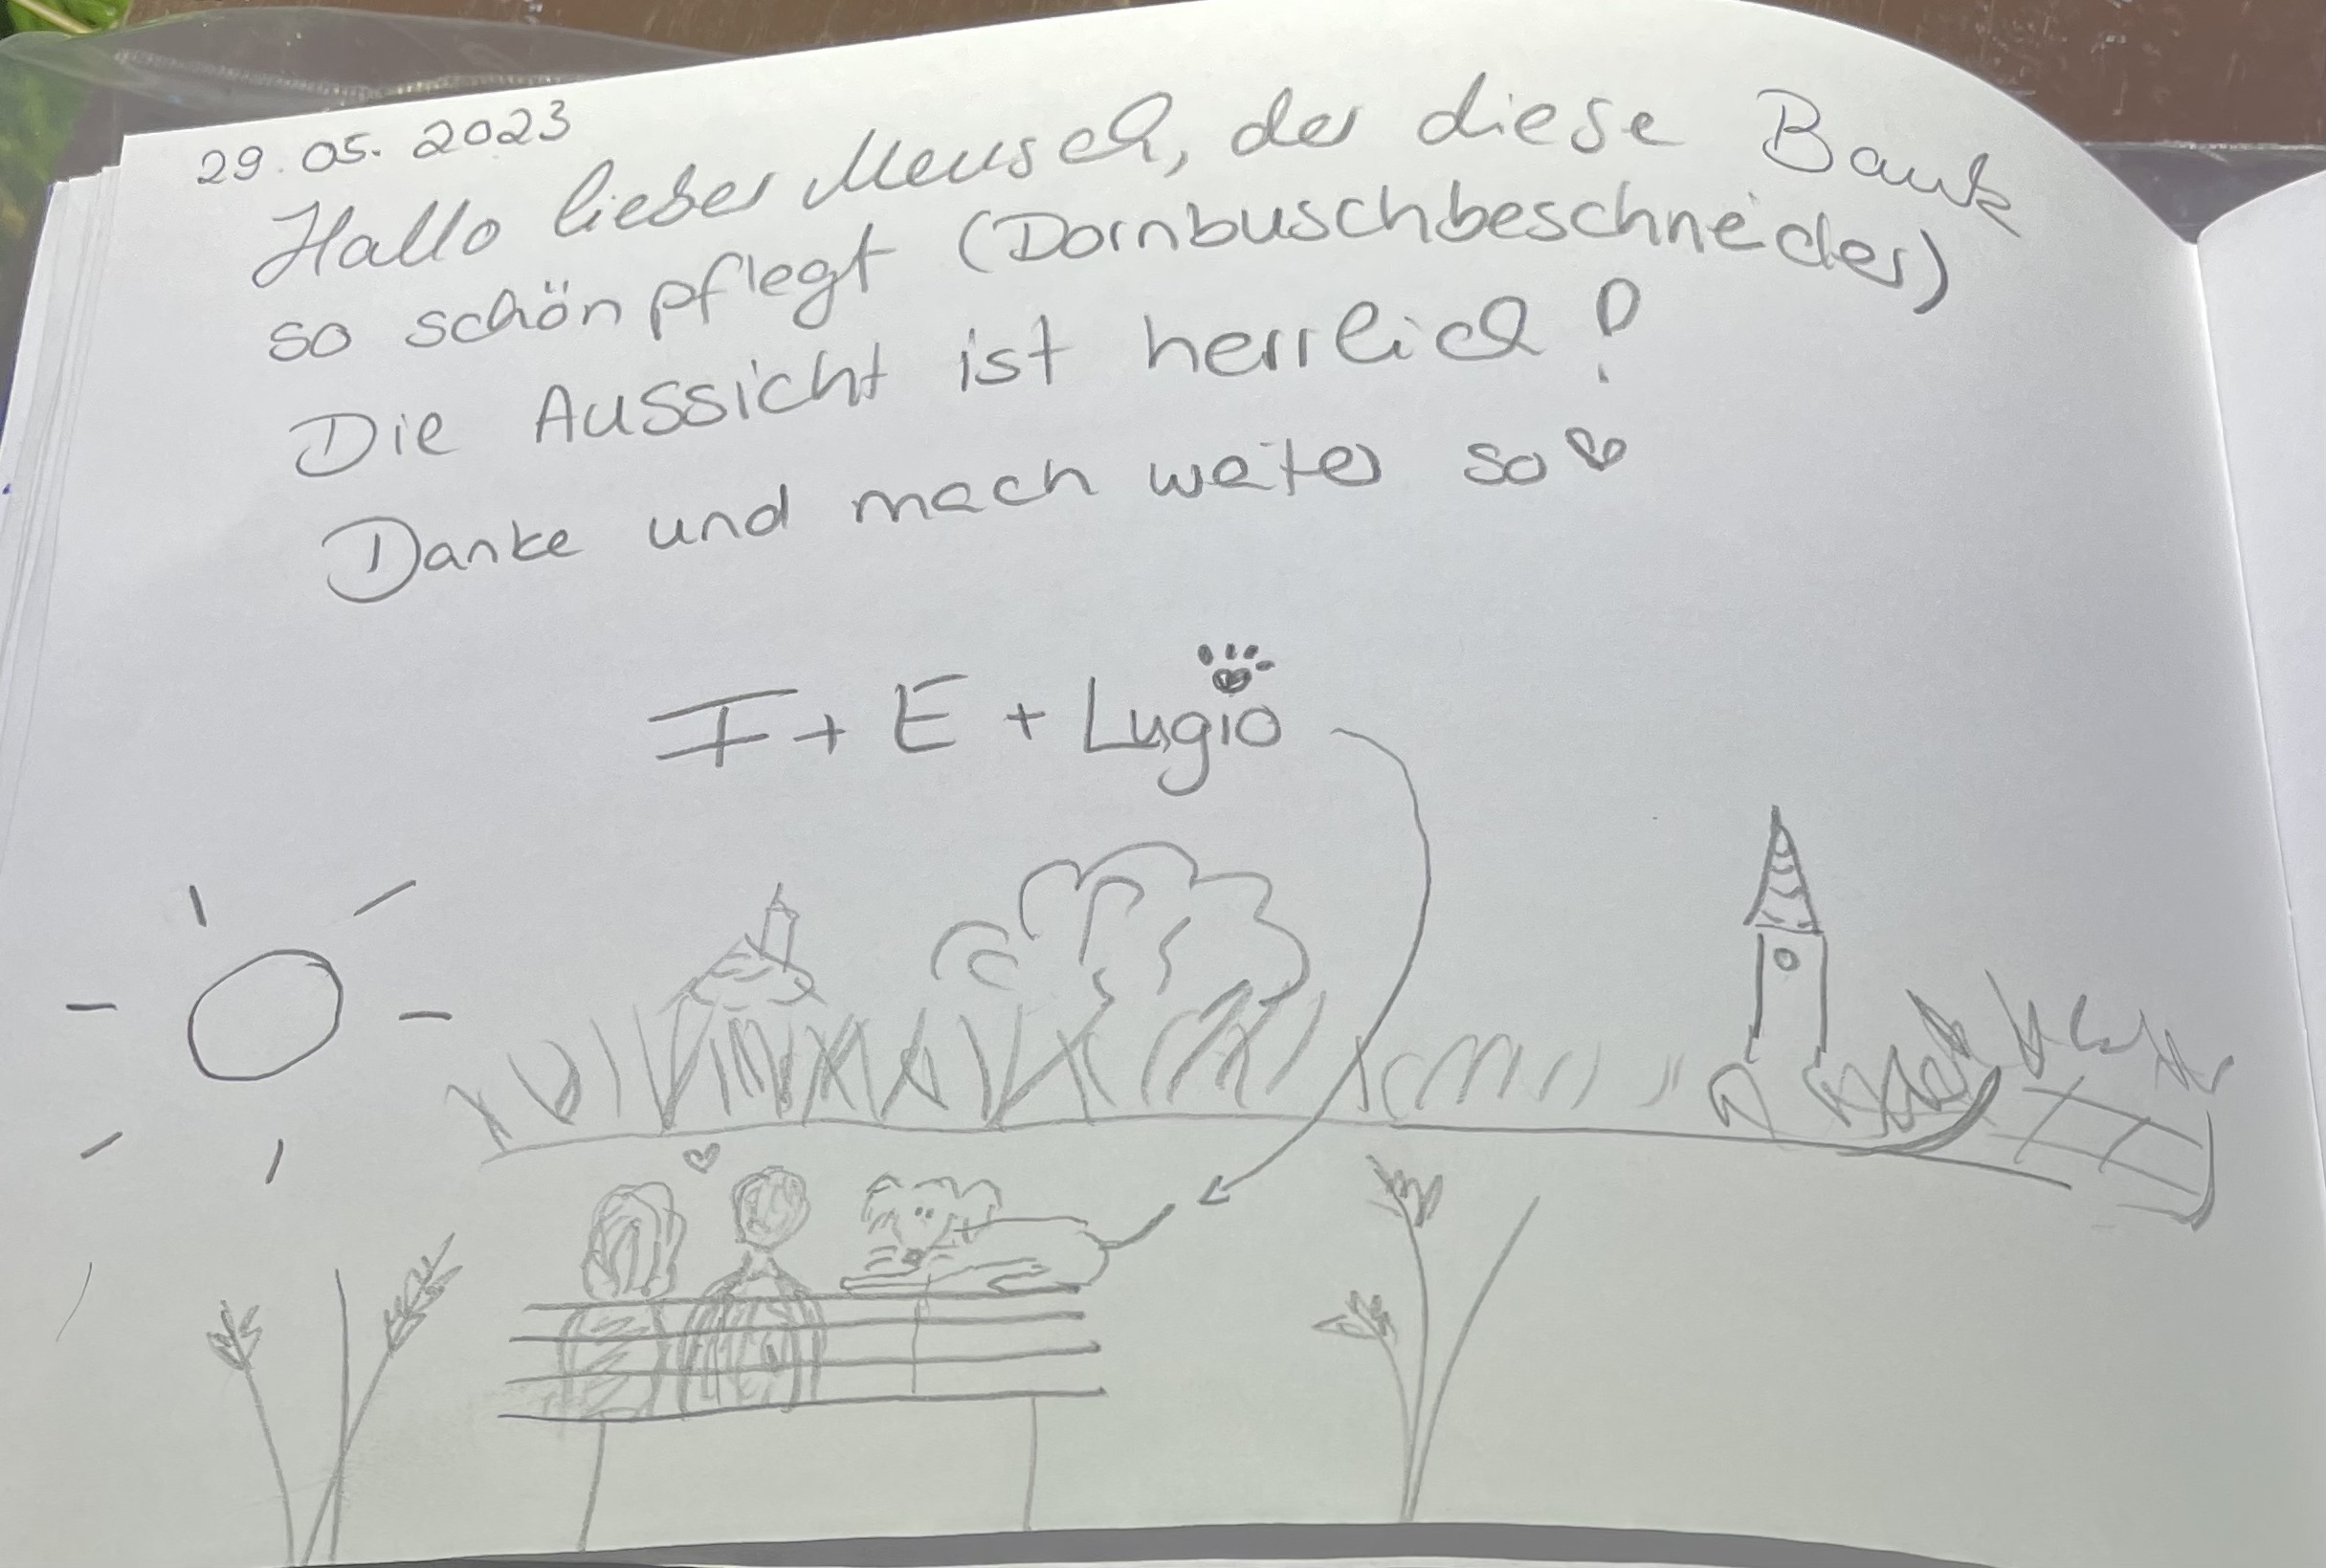 29.05.2023
Hallo lieber Mensch, der diese Bank
so schön pflegt (Dornbuschbeschneider)
Die Aussicht ist herrlich!
Danke und mach weiter so ♡
I + E + Lugio